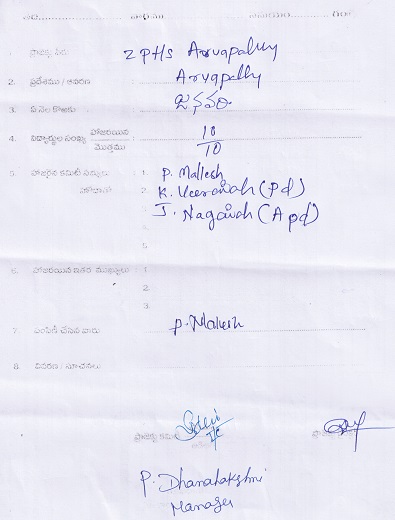 1. ప్రాజెక్టు పేరు ZPHS Arvapally
2. ప్రదేశము / ఆవరణ Arvapally
3. ఏ నెల కొఱకు జనవరి
4. విద్యార్థుల సంఖ్య హాజరయిన 10
మొత్తము 10
5. హాజరైన కమిటీ సభ్యులు 1. P. Mallesh
2. K. Veeraiah (Pd)
3. J. Nagaiah (A pd)
4.
5.
5.
6. హాజరయిన ఇతర ముఖ్యులు 1.
2.
3.
7. పంపిణీ చేసిన వారు P. Mallesh
8. వివరణ / సూచనలు
ప్రాజెక్టు కమిటీ I/C
P. Dhanalakshmi
Manager